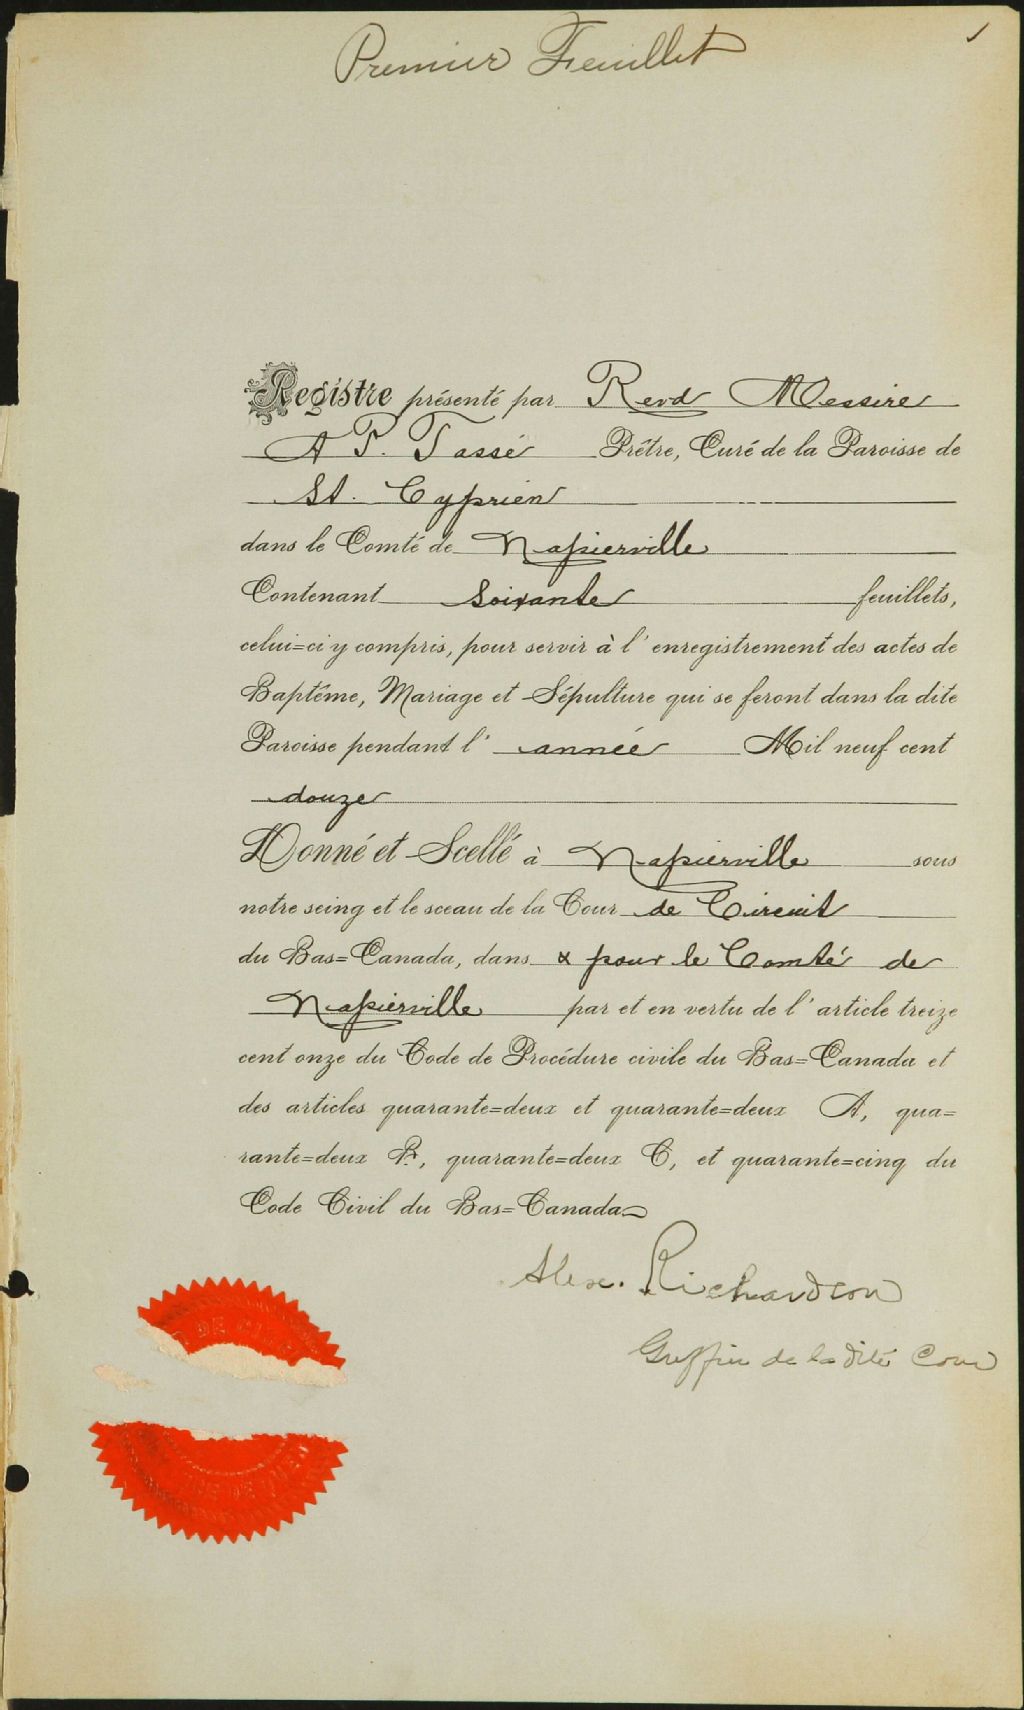 1
Premier Feuillet
Registre présenté par Revd Messire
A P. Tassé Prêtre, Curé de la Paroisse de
St. Cyprien
dans le Comté de Napierville
Contenant Soixante feuillets,
celui=ci y compris, pour servir à l' enregistrement des actes de
Baptême, Mariage et Sépulture qui se feront dans la dite
Paroisse pendant l' année Mil neuf cent
douze
Donné et Scellé à Napierville sous
notre seing et le sceau de la Cour de Circuit
du Bas=Canada, dans & pour le Comté de
Napierville par et en vertu de l' article treize
cent onze du Code de Procédure civile du Bas=Canada et
des articles quarante=deux et quarante=deux A, qua=
rante=deux B, quarante=deux C, et quarante=cinq du
Code Civil du Bas=Canada
Alex. Richardson
Greffier de la dite Cour